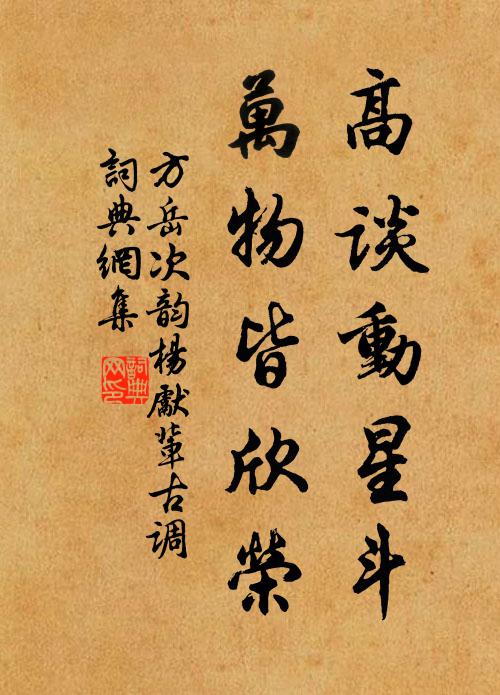 高談動星斗
萬物皆欣榮
方岳次韵楊獻輩古調
詞典網集
詞典網印